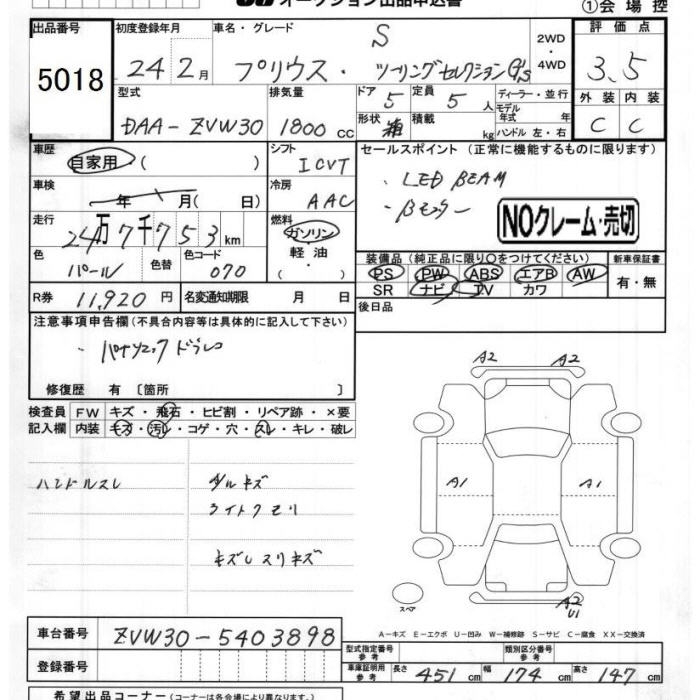 オークション出品申込書
①会場控
出品番号 初度登録年月 車名・グレード 評価点
5018 24年2月 プリウス・ S ツーリングセレクションG's 2WD・4WD 3.5
型式 排気量 ドア 5 定員 5人 ディーラー・並行 外装 内装
モデル年式 年
DAA-ZVW30 1800cc 形状 箱 積載 kg ハンドル 左・右 C C
車歴 自家用 ( ) シフト ICVT セールスポイント (正常に機能するものに限ります)
・LED BEAM
車検 年 月(日) 冷房 AAC ・Bモニター
NOクレーム・売切
走行 24万7千753km 燃料 ガソリン・軽油・( )
色 パール 色替 色コード 070
装備品(純正品に限り○をつけてください) 新車保証書
PS PW ABS エアB AW 有・無
SR ナビ TV カワ
R券 11,920円 名変通知期限 月 日 後日品
注意事項申告欄(不具合内容等は具体的に記入して下さい)
・パナソニックドラレコ
修復歴 有 〔箇所 〕
検査員 FW キズ・飛石・ヒビ割・リペア跡・×要
記入欄 内装 キズ・汚レ・コゲ・穴・スレ・キレ・破レ
A2 A2
A1 A1
ハンドルスレ
ライトクモリ
キズレスリキズ
スペア
A2
U1
A-キズ E-エクボ U-凹み W-補修跡 S-サビ C-腐食 XX-交換済
車台番号 ZVW30-5403898
型式指定番号 参考 類別区分番号 参考
登録番号
車庫証明用 参考 長さ 451cm 幅 174cm 高さ 147cm
希望出品コーナー(コーナーは各会場により異なります。)